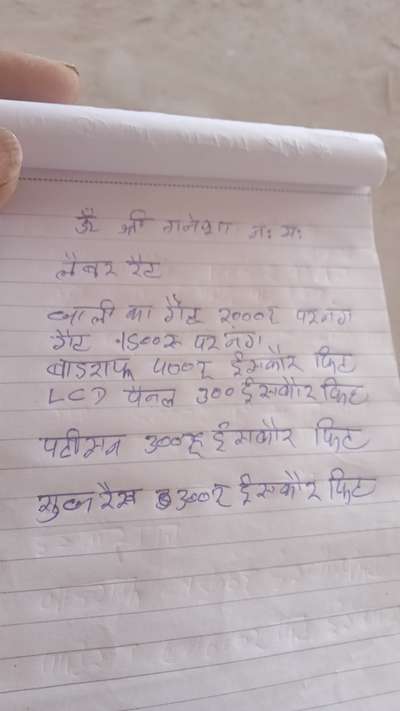 ॐ श्री गनेशा न: म:
लैबर रैट
जाली का गैट 2000र परनग
गैट 1500रु परनग
वाडराफ 400र ईसकौर फिट
LCD पैनल 300 ईसकौर फिट
पटीसन 300रु ईसकौर फिट
सुज रैख 300र ईसकौर फिट